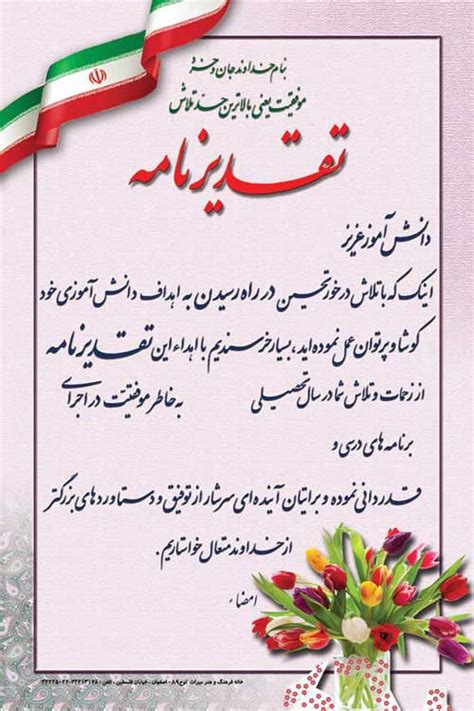 بنام خداوند جان و خرد
موفقیت یعنی بالاترین حد تلاش
تقدیرنامه
دانش آموز عزیز
اینک که با تلاش در خور تحسین در راه رسیدن به اهداف دانش آموزی خود
کوشا و پرتوان عمل نموده اید ، بسیار خرسندیم با اهداء این تقدیرنامه
از زحمات و تلاش شما در سال تحصیلی به خاطر موفقیت در اجرای
برنامه های درسی و
قدردانی نموده و برایتان آینده ای سرشار از توفیق و دستاوردهای بزرگتر
از خداوند متعال خواستاریم.
امضاء
خانه فرهنگ و هنر میراث لوح ۸۹ - اصفهان ، خیابان فلسطین ، تلفن :